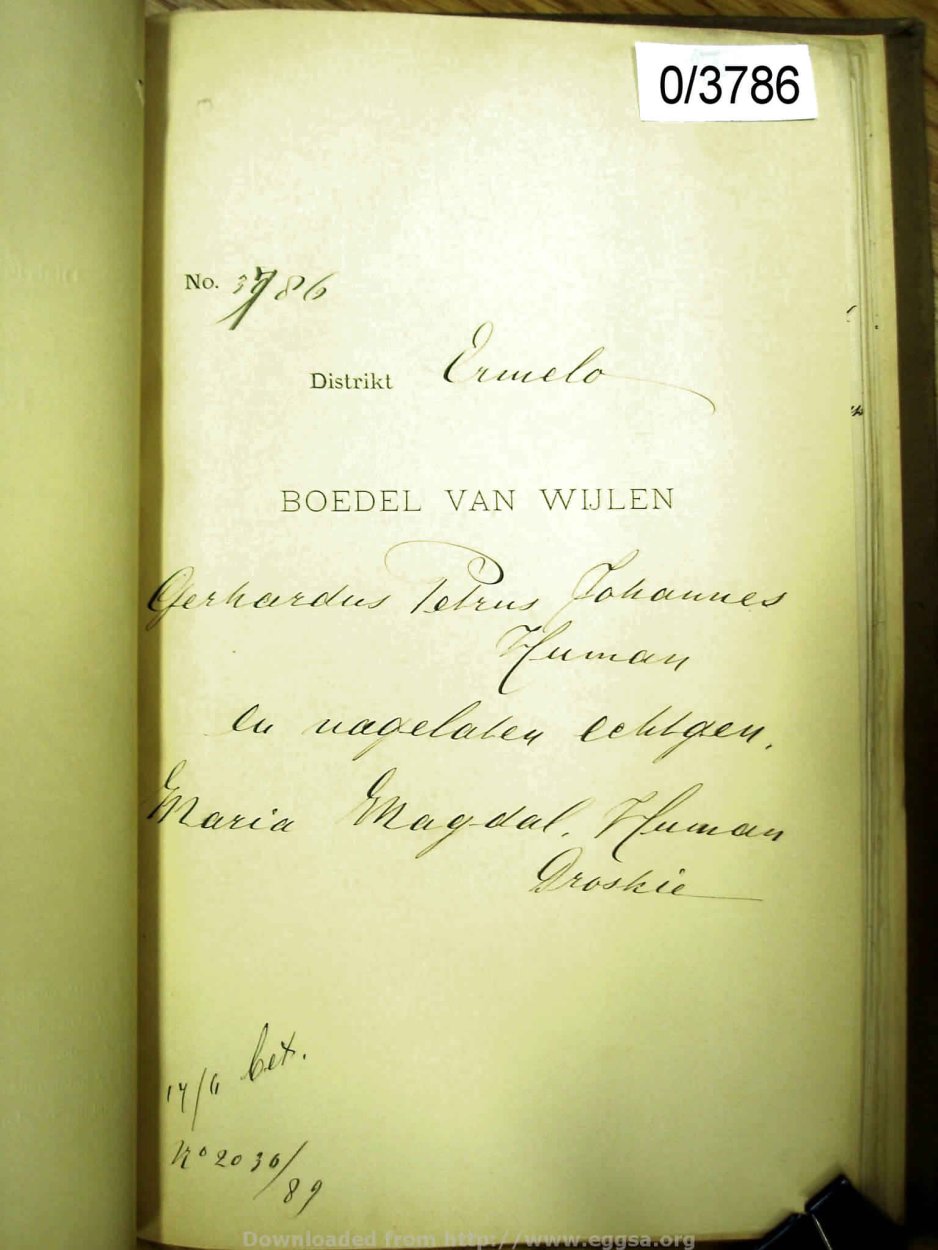 0/3786
No. 3786
Distrikt Ermelo
BOEDEL VAN WIJLEN
Gerhardus Petrus Johannes
Human
en nagelaten echtgen.
Maria Magdal. Human
Droskie
17/6 bet.
No 2030/89
Downloaded from http://www.eggsa.org